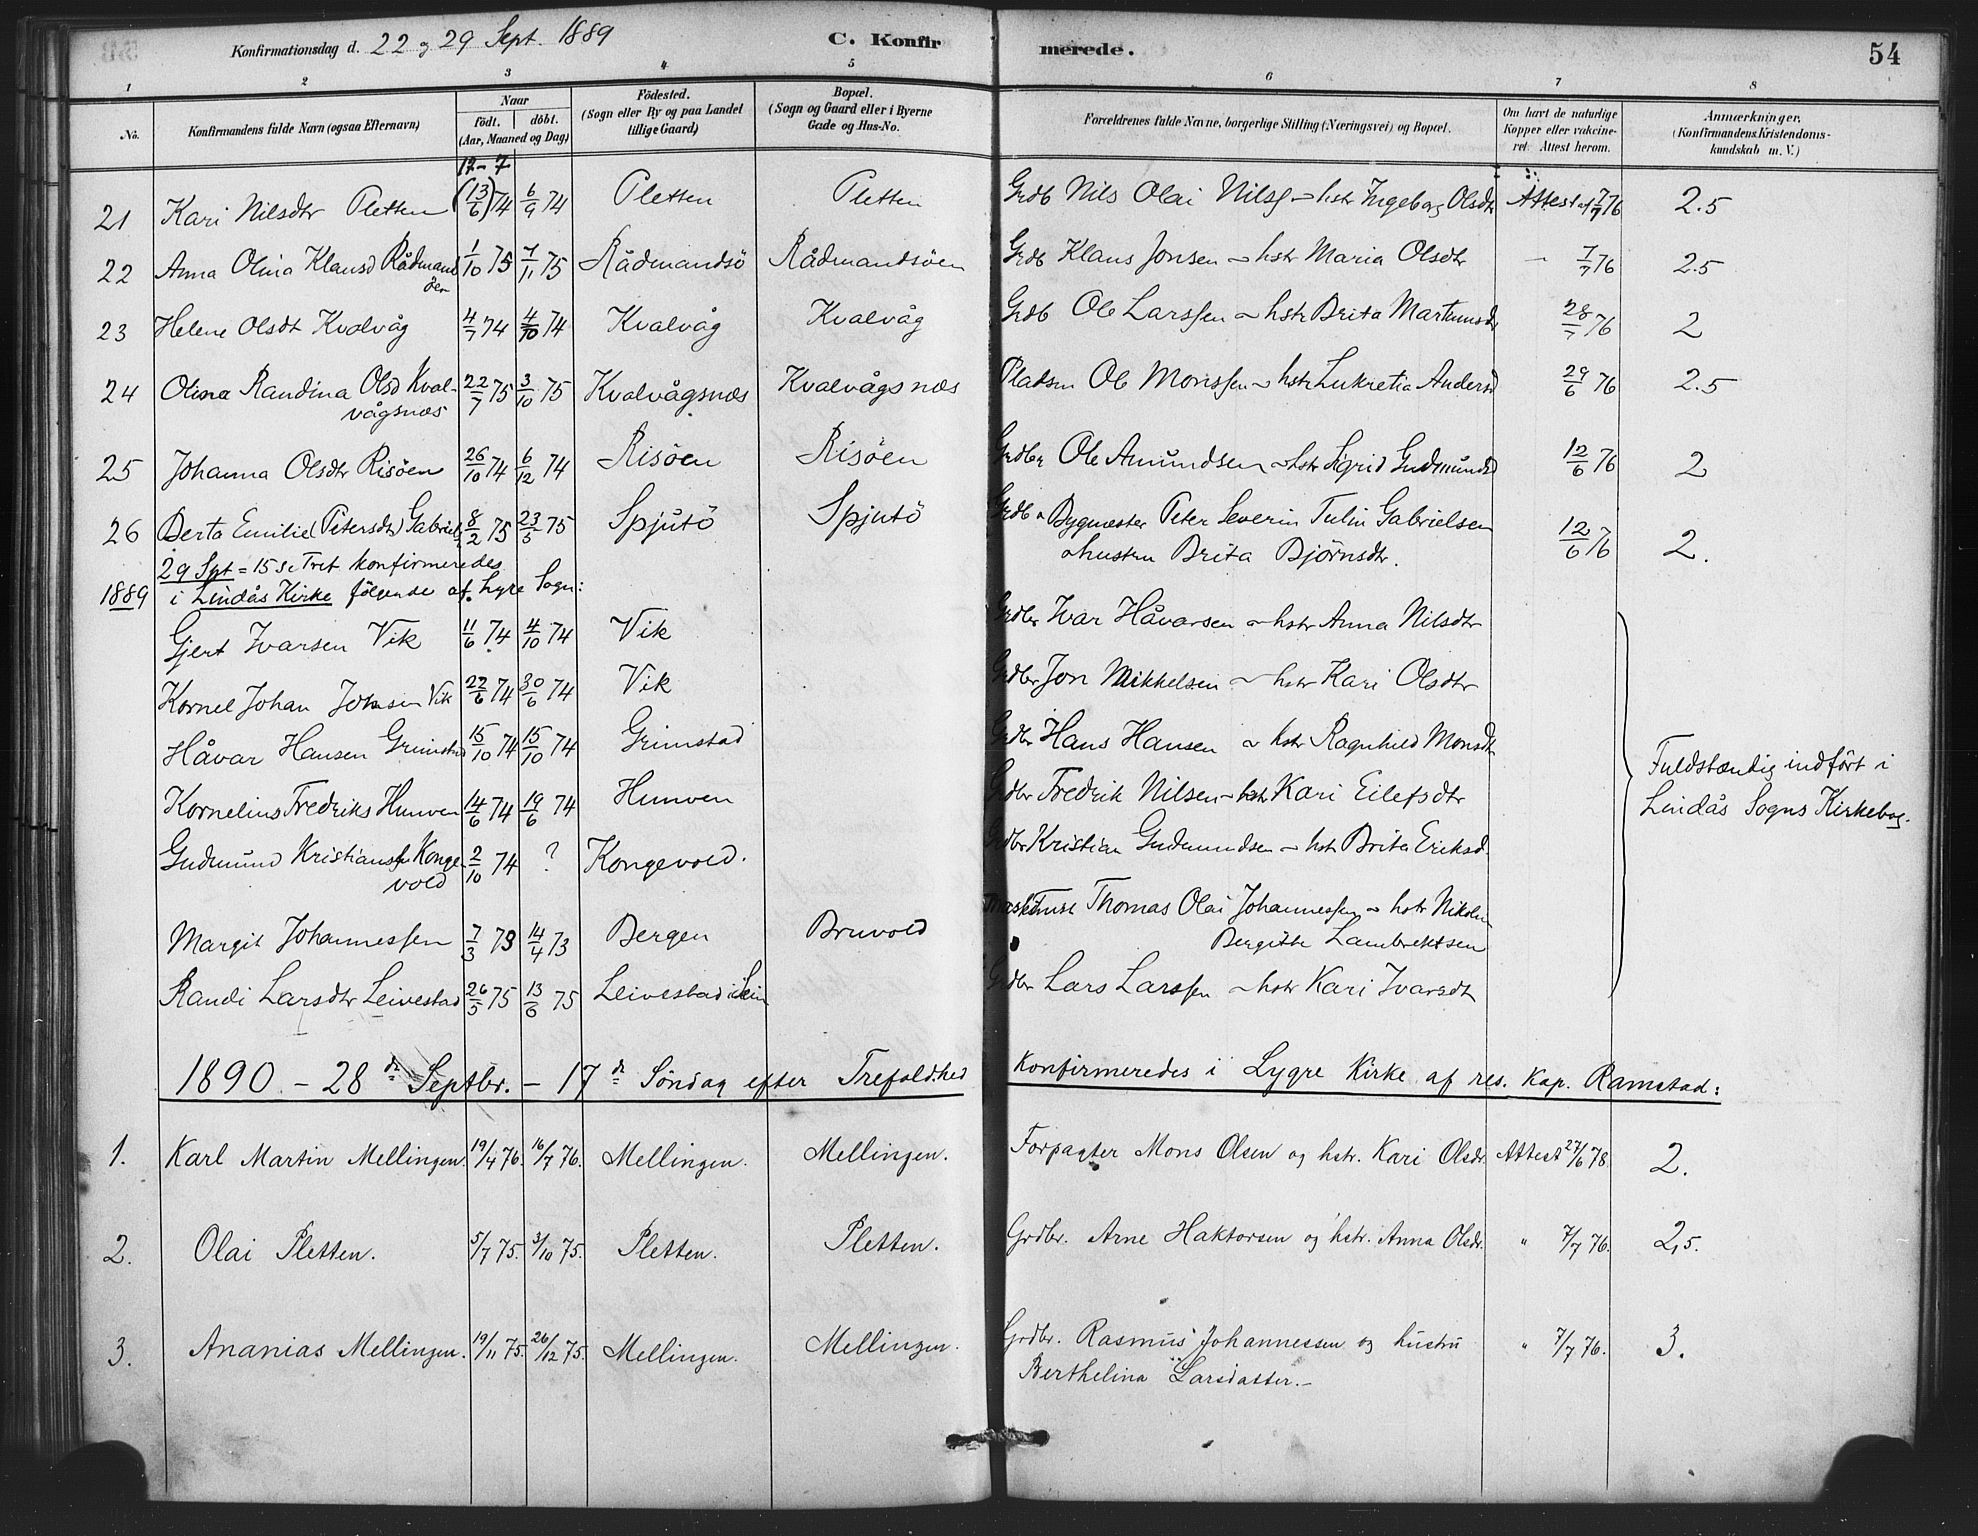 Konfirmationsdag d. 22 og 29 Sept. 1889 C. Konfir merede. 54
1 2 3 4 5 6 7 8
No. Konfirmandens fulde Navn (ogsaa Efternavn) Naar födt. döbt. (Aar, Maaned og Dag) Födested. (Sogn eller By og paa Landet tillige Gaard) Bopæl. (Sogn og Gaard eller i Byerne Gade og Hus-No. Forældrenes fulde Navne, borgerlige Stilling (Næringsvei) og Bopæl. Om havt de naturlige Kopper eller vakcineret. Attest herom. Anmærkninger. (Konfirmandens Kristendomskundskab m. V.)
17-7
21 Kari Nilsdtr Pletten (13/6) 74 6/9 74 Pletten Pletten Grdb Nils Olai Nilss hstr Ingeborg Olsdtr Attest af 7/7 76 2.5
22 Anna Olina Klausd Rådmandsöen 1/10 75 7/11 75 Rådmandsö Rådmandsöen Grdb Klaus Jonsen hstr Maria Olsdtr — 7/7 76 2.5
23 Helene Olsdt Kvalvåg 4/7 74 4/10 74 Kvalvåg Kvalvåg Grdb Ole Larssen hstr Brita 28/7 76 2
24 Olina Randina Olsd Kval- 22/7 75 3/10 75 Kvalvågsnæs Kvalvågsnæs Pladsm Ole Monssen hstr Lukretia Andersd 29/6 76 2.5
vågsnæs
25 Johanna Olsdtr Risöen 26/10 74 6/12 74 Risöen Risöen Grdbr Ole Amundsen hstr Sigrid Gudmundsd 12/6 76 2
26 Berta Emilie (Petersdtr) Gabriels 8/2 75 23/5 75 Spjutö Spjutö Grdb Bygmester Peter Severin Tulin Gabrielsen 12/6 76 2.
hustru Brita Björnsdtr.
29 Spt = 15 S. e Tref konfirmeredes
1889 i Lindås Kirke fölgende af Lygre Sogn:
Gjert Ivarsen Vik 11/6 74 4/10 74 Vik Grdbr Ivar Håvarsen hstr Anna Nilsdtr
Kornel Johan Johnsen Vik 22/6 74 30/6 74 Vik Grdbr Jon Mikkelsen hstr Kari Olsdtr
Håvar Hansen Grimstad 15/10 74 15/10 74 Grimstad Grdbr Hans Hansen hstr Ragnhild Monsdtr
Fuldstændig indfört i
Kornelius Fredriks Hunven 14/6 74 19/6 74 Hunven Grdbr Fredrik Nilsen hstr Kari Eilefsdtr
Lindås Sogns Kirkebog.
Gudmund Kristianss Kongevold 2/10 74 ? Kongevold. Grdbr Kristian Gudmundsen hstr Brita Eriksd.
Margit Johannessen 7/3 73 14/4 73 Bergen Bruvold Thomas Olai Johannessen hstr
Lambrektsen
Randi Larsdtr Leivestad 26/5 75 13/6 75 Leivestad i Grdbr Lars Larssen hstr Kari Ivarsdt
1890 – 28de Septbr. – 17de Söndag efter Trefoldhed Konfirmeredes i Lygre Kirke af res. Kap. Ramstad:
1. Karl Martin Mellingen. 19/4 76. 16/7 76. Mellingen. Mellingen. Forpagter Mons Olsen og hstr. Kari Olsdr. Attest 27/6 78. 2.
2. Olai Pletten. 5/7 75. 3/10 75. Pletten. Pletten. Grdbr. Arne Haktorsen og hstr. Anna Olsdr. " 7/7 76. 2,5.
3. Ananias Mellingen. 19/11 75. 26/12 75. Mellingen. Mellingen. Grdbr. Rasmus Johannessen og hustru " 7/7 76. 3.
Berthelina Larsdatter.–